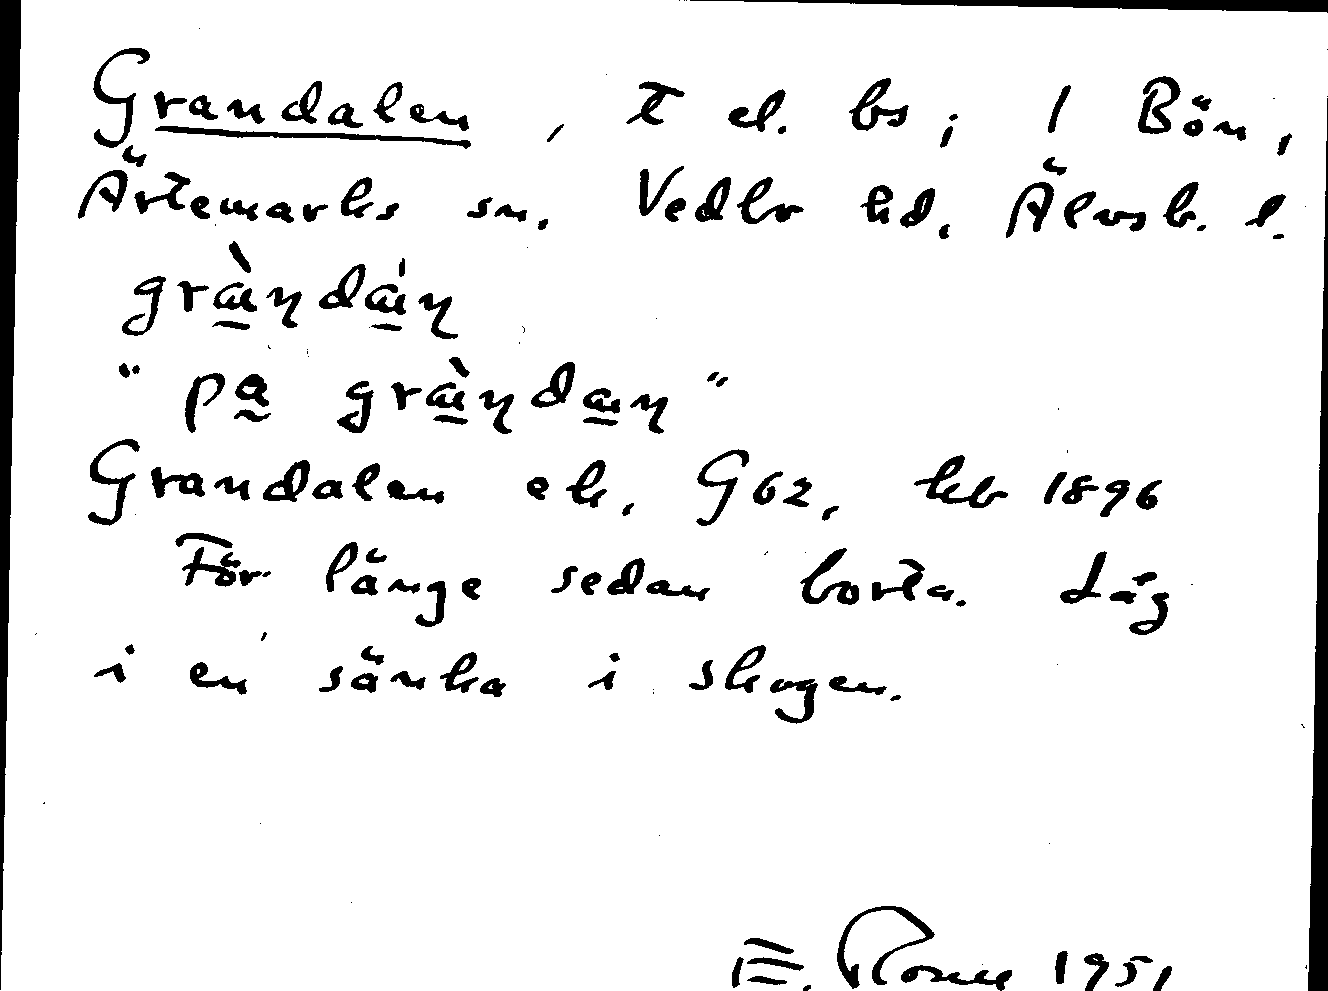 Grandalen, t el. bs; 1 Bön,
Ärtemarks sn. Vedbo hd. Älvsb. l.
gràndán
"på gràndan"
Grandalen ek, G62, kb 1896
För länge sedan borta. Låg
i en sänka i skogen.
E. 1951